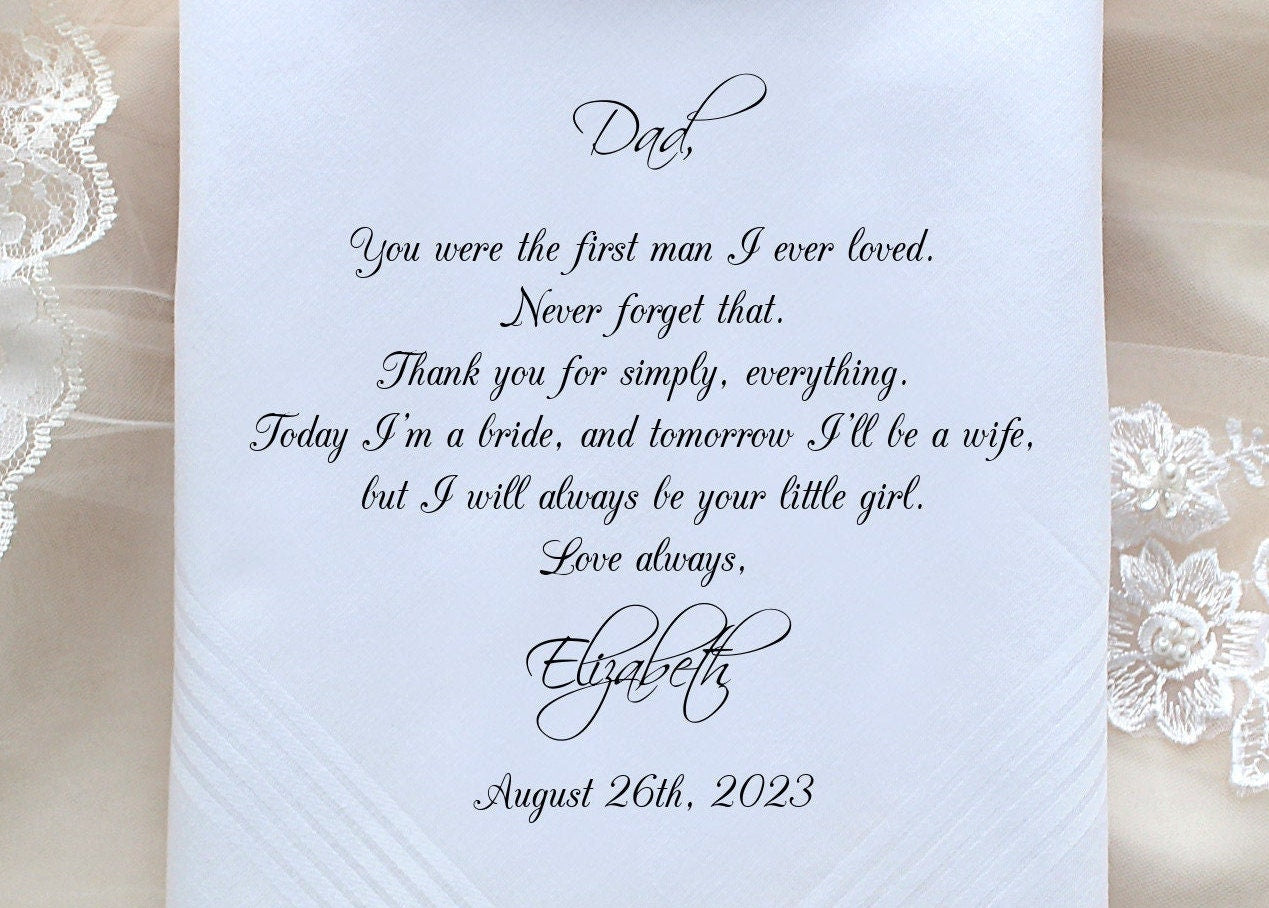 Dad,
You were the first man I ever loved.
Never forget that.
Thank you for simply, everything.
Today I'm a bride, and tomorrow I'll be a wife,
but I will always be your little girl.
Love always,
Elizabeth
August 26th, 2023